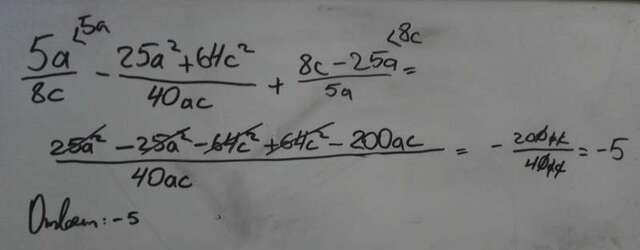 5a/8c ⌞5a - (25a² + 64c²)/40ac + (8c - 25a)/5a ⌞8c =
(25a² - 25a² - 64c² + 64c² - 200ac)/40ac = - 200ac/40ac = -5
Ответ: -5